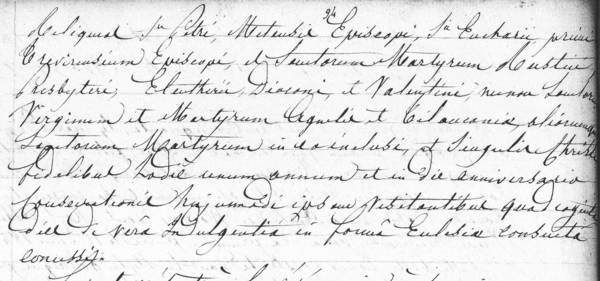 24
Reliquias Sti Petri, Metensis Episcopi, Sti Eucharii primi
Trevirensium Episcopi, et Sanctorum Martyrum Rustici
Presbyteri, Eleutherii, Diaconi, et Valentini, necnon Sanctarum
Virginum et Martyrum Agnetis et aliorumque
Sanctorum Martyrum in eo inclusi, et Singulis Christi
fidelibus hodie unum annum et in die anniversario
Consecrationis hujusmodi ipsam visitantibus quadraginta
dies de verâ Indulgentiâ in formâ Eclesiæ consuetâ
concessi.